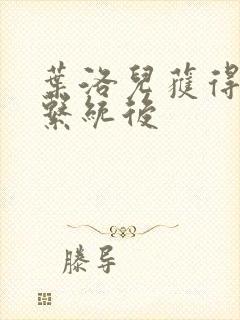 葉洛兒獲得
繫統後
滕导